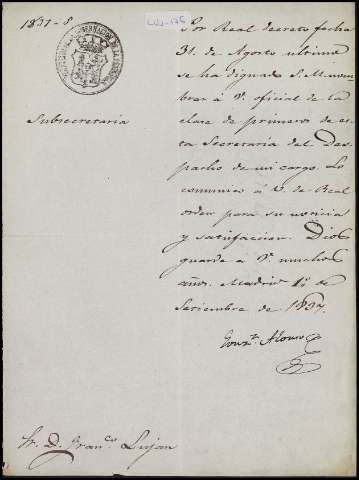 1837-8
Subsecretaria
Por Real decreto fecha
31. de Agosto ultimo
se ha dignado S. M. nom-
brar á V. oficial de la
clase de primeros de es-
ta Secretaria del Des-
pacho de mi cargo. Lo
comunico á V. de Real
orden para su noticia
y satisfaccion. Dios
guarde á V. muchos
años. Madrid 1º de
Setiembre de 1837.
Alonso
Sr. D. Franco Lujan